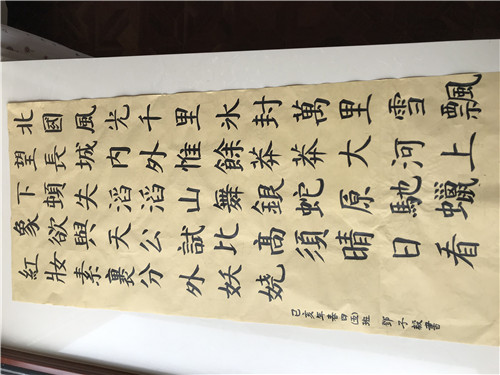 北國風光千里氷封萬里雪飄
望長城内外惟餘莽莽大河上
下頓失滔滔山舞銀蛇原馳蠟
象欲與天公試比高須晴日看
紅妝素裹分外妖娆
己亥年春四(五)班 鄧子毅書